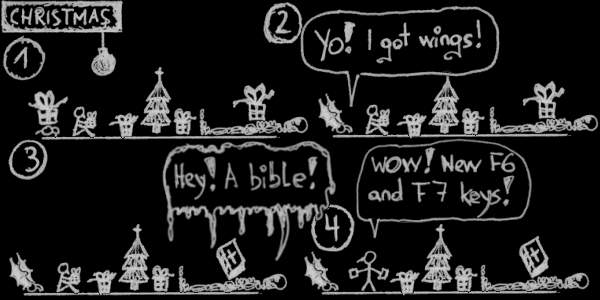 CHRISTMAS
1
2
Yo! I got wings!
3
Hey! A bible!
4
WOW! New F6
and F7 keys!